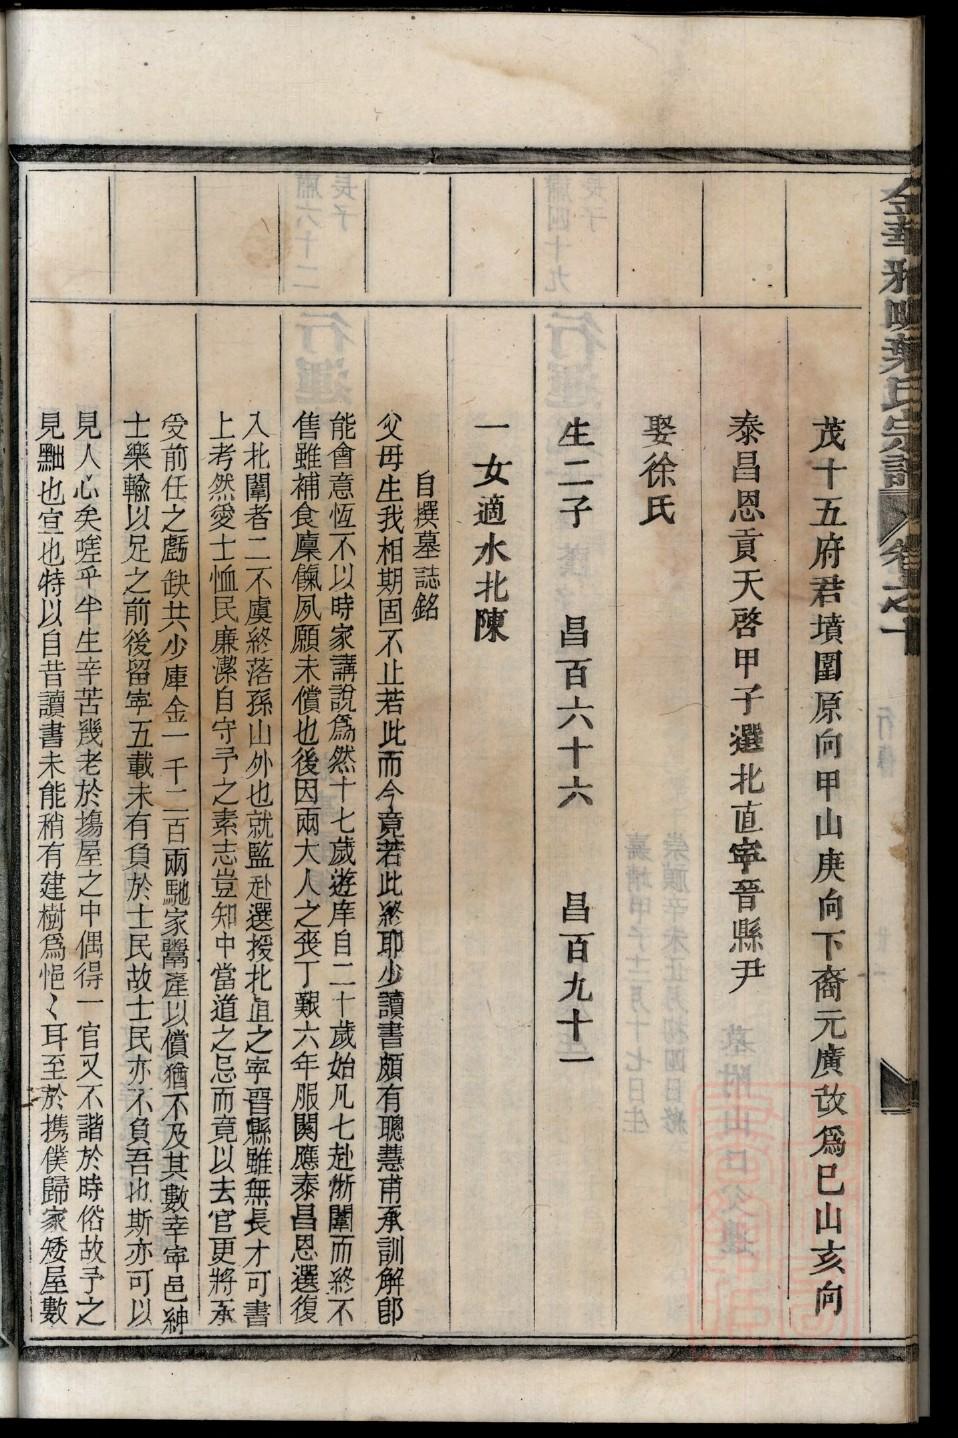 茂十五府君墳圍原向甲山庚向下裔元廣改爲巳山亥向
泰昌恩貢天啓甲子選北直寧晉縣尹
娶徐氏
生二子　昌百六十六　昌百九十一
一女適水北陳
自撰墓誌銘
父母生我相期固不止若此而今竟若此終耶少讀書頗有聰慧甫承訓解卽
能會意恆不以時家講說爲然十七歲遊庠自二十歲始凡七赴浙闈而終不
售雖補食廩餼夙願未償也後因兩大人之喪丁艱六年服闋應泰昌恩選復
入北闈者二不虞終落孫山外也就監赴選授北直之寧晉縣雖無長才可書
上考然愛士恤民廉潔自守予之素志豈知中當道之忌而竟以去官更將承
受前任之虧缺共少庫金一千二百兩馳家鬻產以償猶不及其數幸寧邑紳
士樂輸以足之前後留寧五載未有負於士民故士民亦不負吾也斯亦可以
見人心矣嗟乎半生辛苦幾老於塲屋之中偶得一官又不諧於時俗故予之
見黜也宜也特以自昔讀書未能稍有建樹爲悒〻耳至於携僕歸家矮屋數